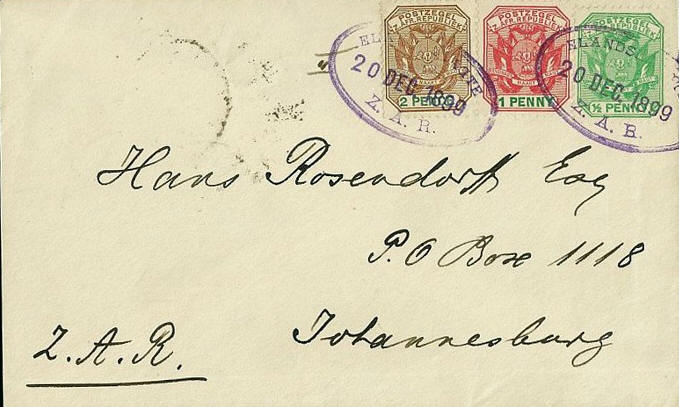 POSTZEGEL
Z. AFR. REPUBLIEK
2 PENCE
POSTZEGEL
Z. AFR. REPUBLIEK
1 PENNY
POSTZEGEL
Z. AFR. REPUBLIEK
½ PENNY
20 DEC. 1899
Z. A. R.
20 DEC. 1899
Z. A. R.
Hans Rosendorff Esq
P.O Box 1118
Johannesburg
Z.A.R.